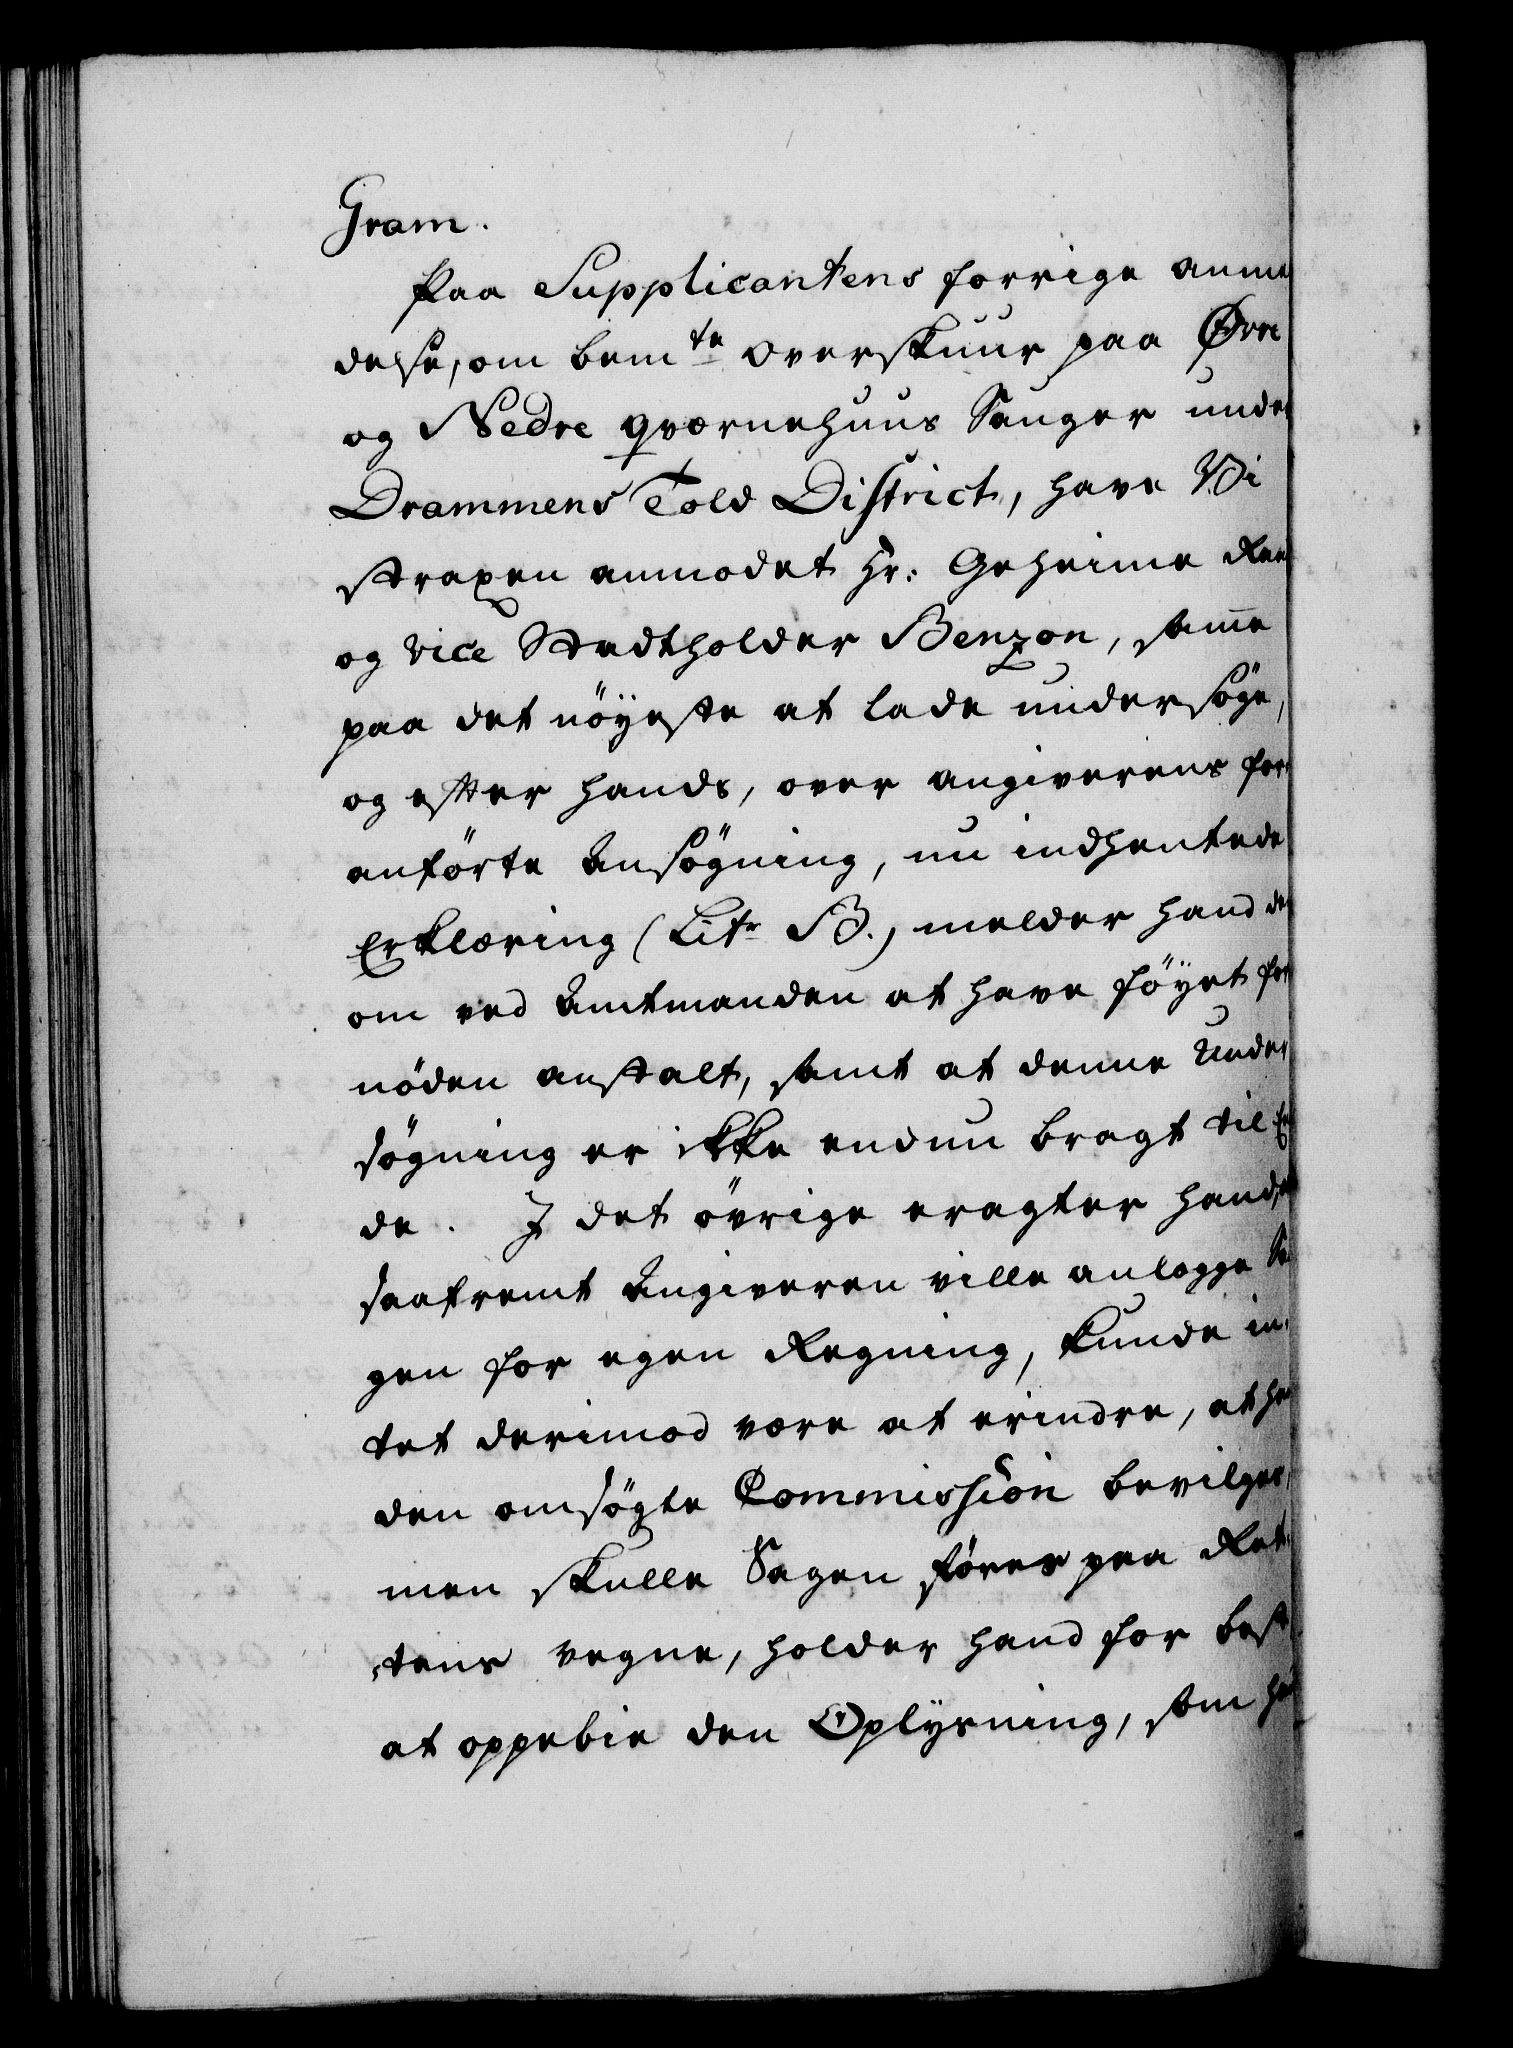 Gram.
Paa Supplicantens forrige anme
delse, om bem te overskuur paa Øvre
og Nedre qværnehuus Sauger under
Drammens Told District, have Vi
straxen anmodet Hr: Geheime Raa
og vice Stadtholder Benzon, samme
paa det nöyeste at lade undersöge,
og efter hands, over angiverens for
anförte Ansögning, nu indhentede
Erklæring (Litr B.) melder hand der
om ved Amtmanden at have föyet for
nöden anstalt, samt at denne Under
sögning er ikke endnu bragt til En
de. I det övrige eragter hand, at
saafremt Angiveren ville anlægge Sa
gen for egen Regning, kunde in
tet derimod være at erindre, at jo
den omsögte Commission bevilges,
men skulle Sagen föres paa Ret
tens vegne, holder hand for best
at oppebie den Oplysning, som